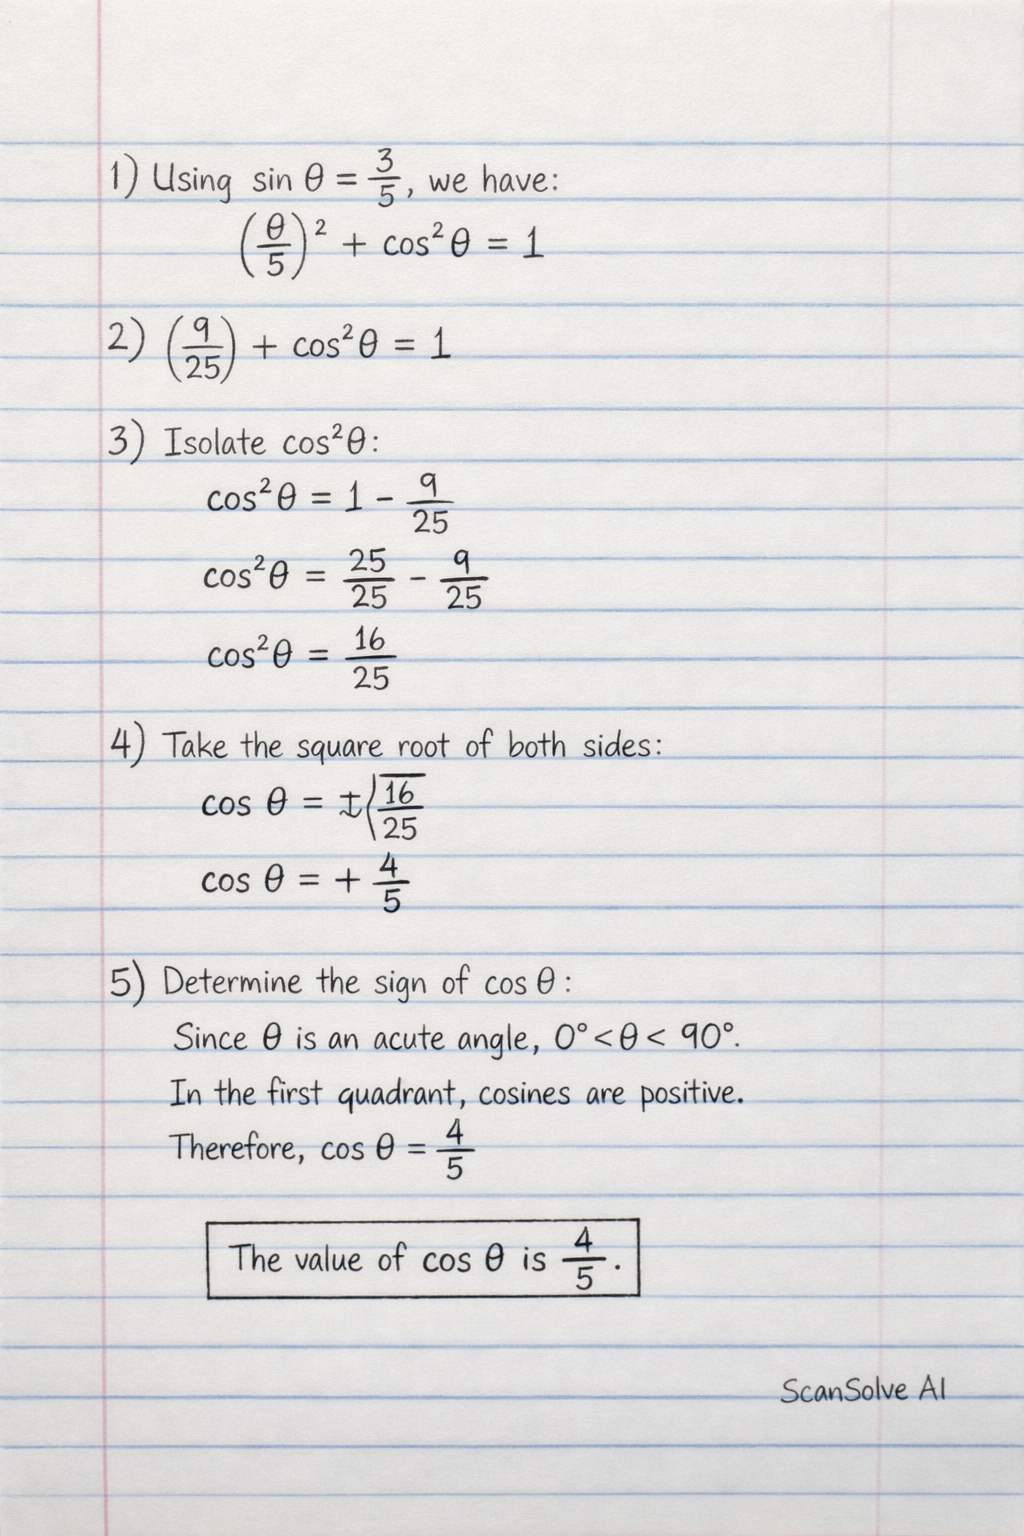 1) Using sin θ = 3/5, we have:
(θ/5)² + cos²θ = 1
2) (9/25) + cos²θ = 1
3) Isolate cos²θ:
cos²θ = 1 - 9/25
cos²θ = 25/25 - 9/25
cos²θ = 16/25
4) Take the square root of both sides:
cos θ = ±√(16/25)
cos θ = + 4/5
5) Determine the sign of cos θ:
Since θ is an acute angle, 0° < θ < 90°.
In the first quadrant, cosines are positive.
Therefore, cos θ = 4/5
The value of cos θ is 4/5.
ScanSolve AI